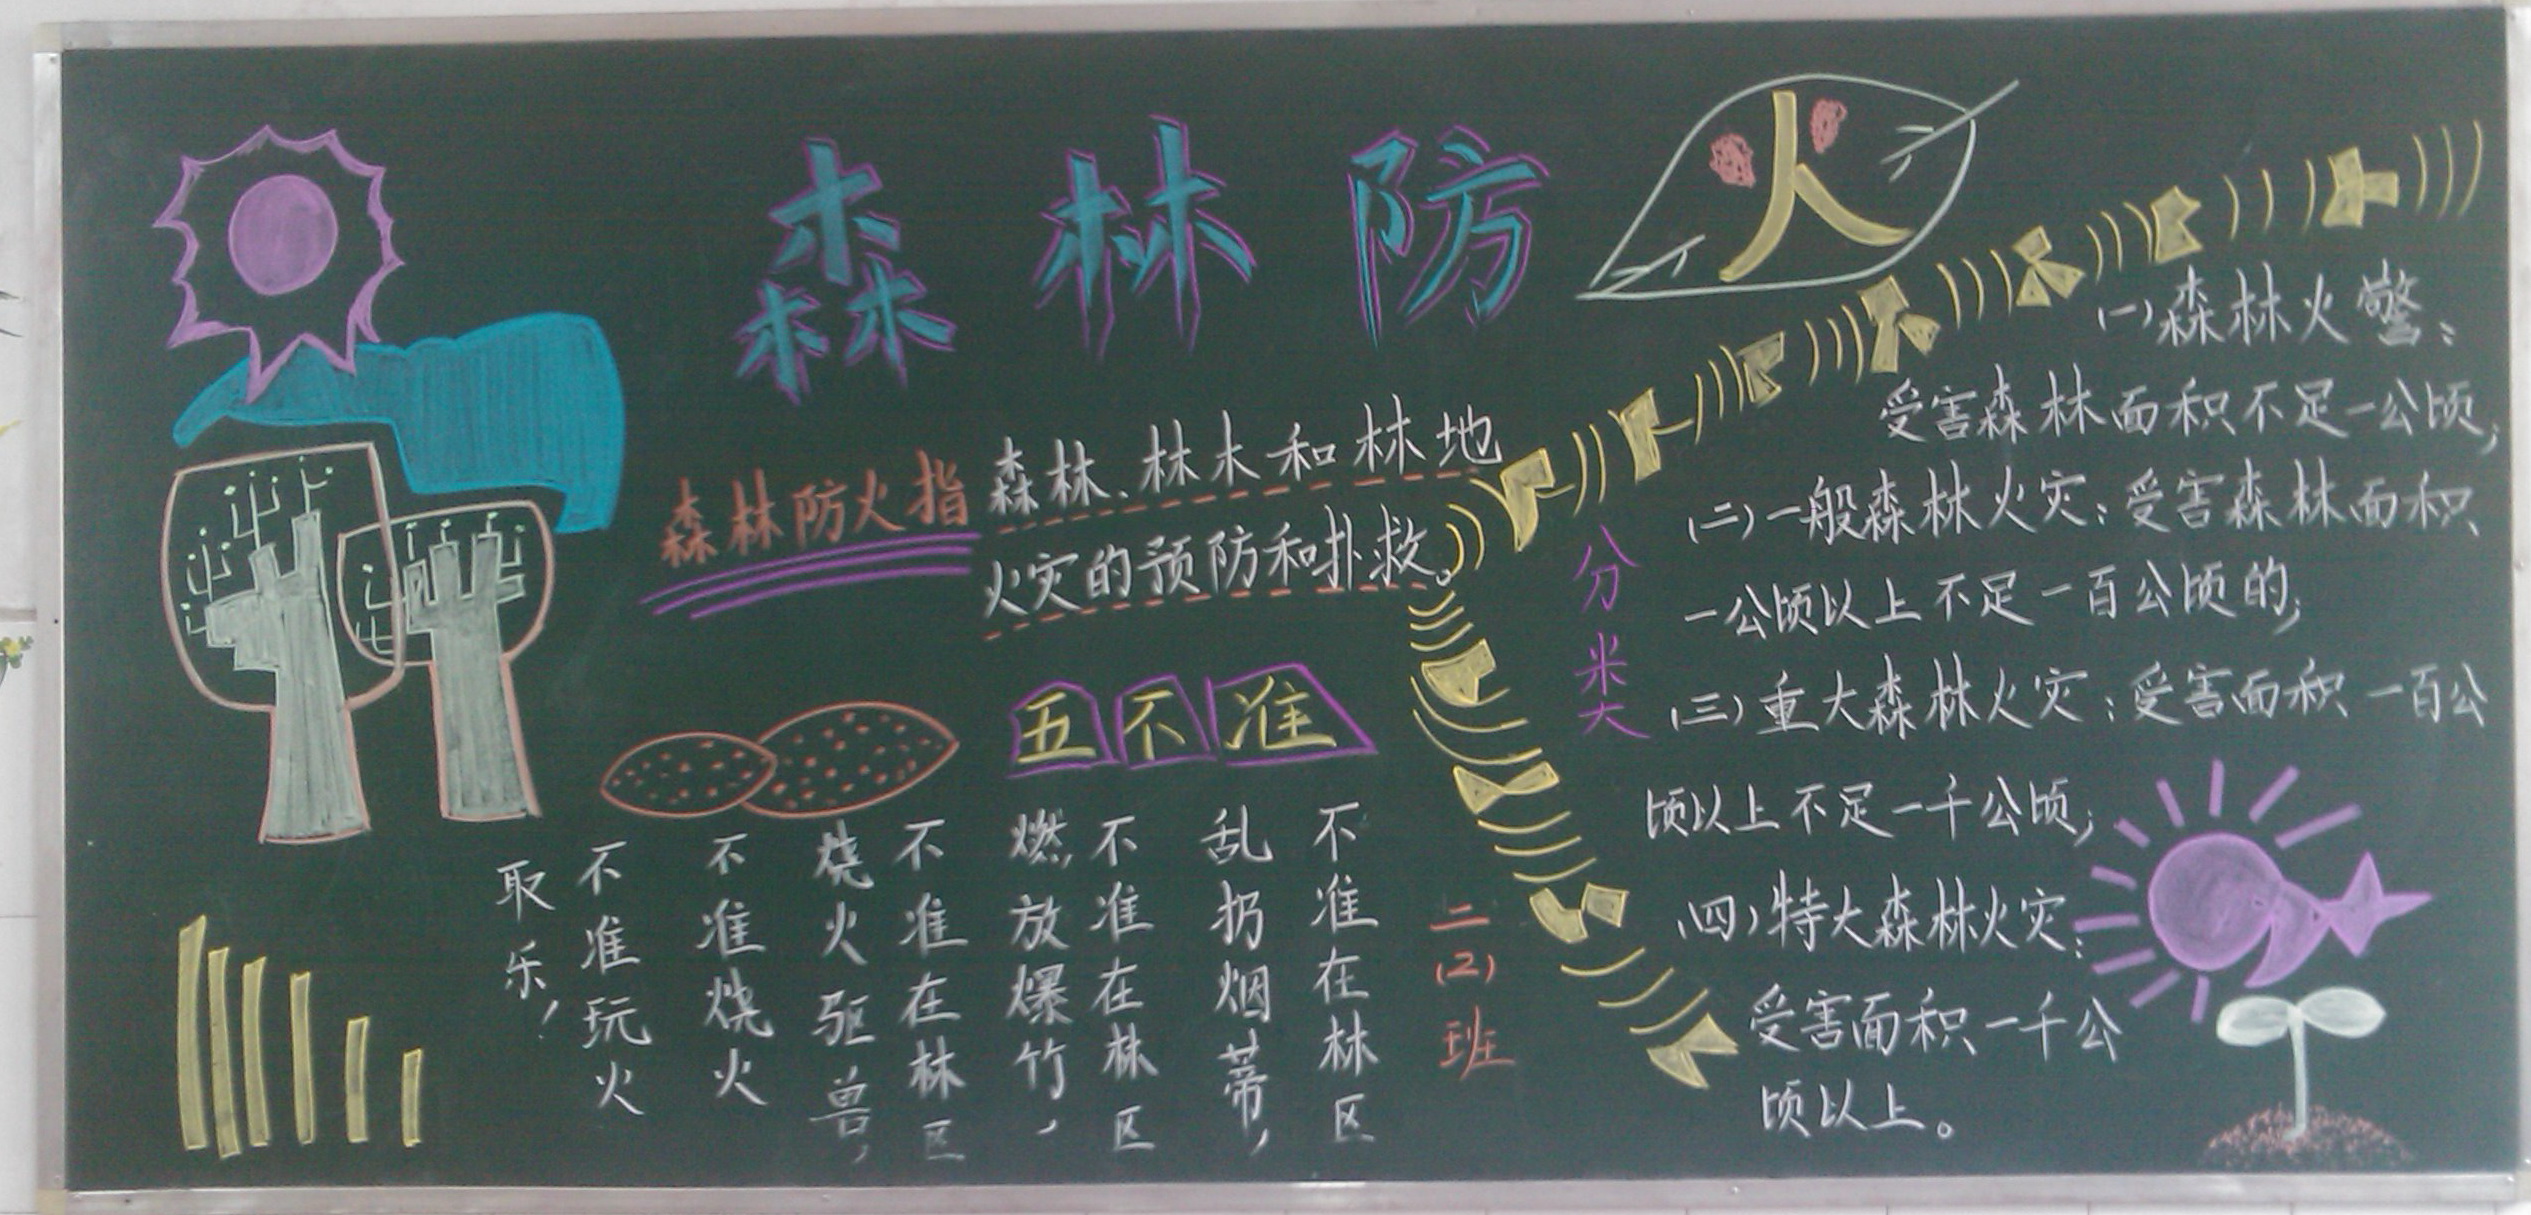 森林防火
森林防火指
森林、林木和林地
火灾的预防和扑救。
五不准
不准在林区
乱扔烟蒂,
不准在林区
燃放爆竹,
不准在林区
烧火驱兽,
不准烧火
不准玩火
取乐!
二(2)班
分类
(一)森林火警:
受害森林面积不足一公顷;
(二)一般森林火灾:受害森林面积
一公顷以上不足一百公顷的;
(三)重大森林火灾:受害面积一百公
顷以上不足一千公顷;
(四)特大森林火灾:
受害面积一千公
顷以上。